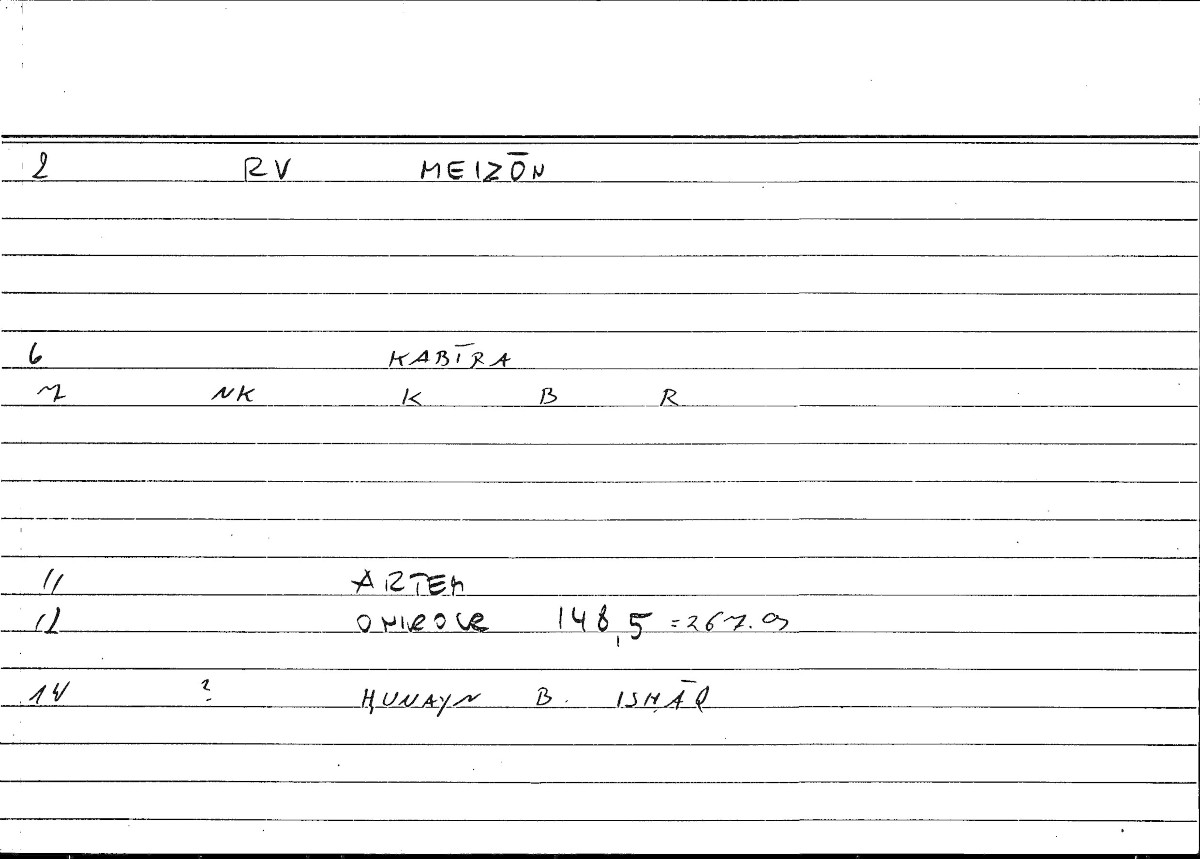 2 RV MEIZŌN
6 KABĪRA
7 NK K B R
11 ARTEM
12 ONIROCR 148,5 = 267.9
14 ? ḤUNAYN B. ISḤĀQ